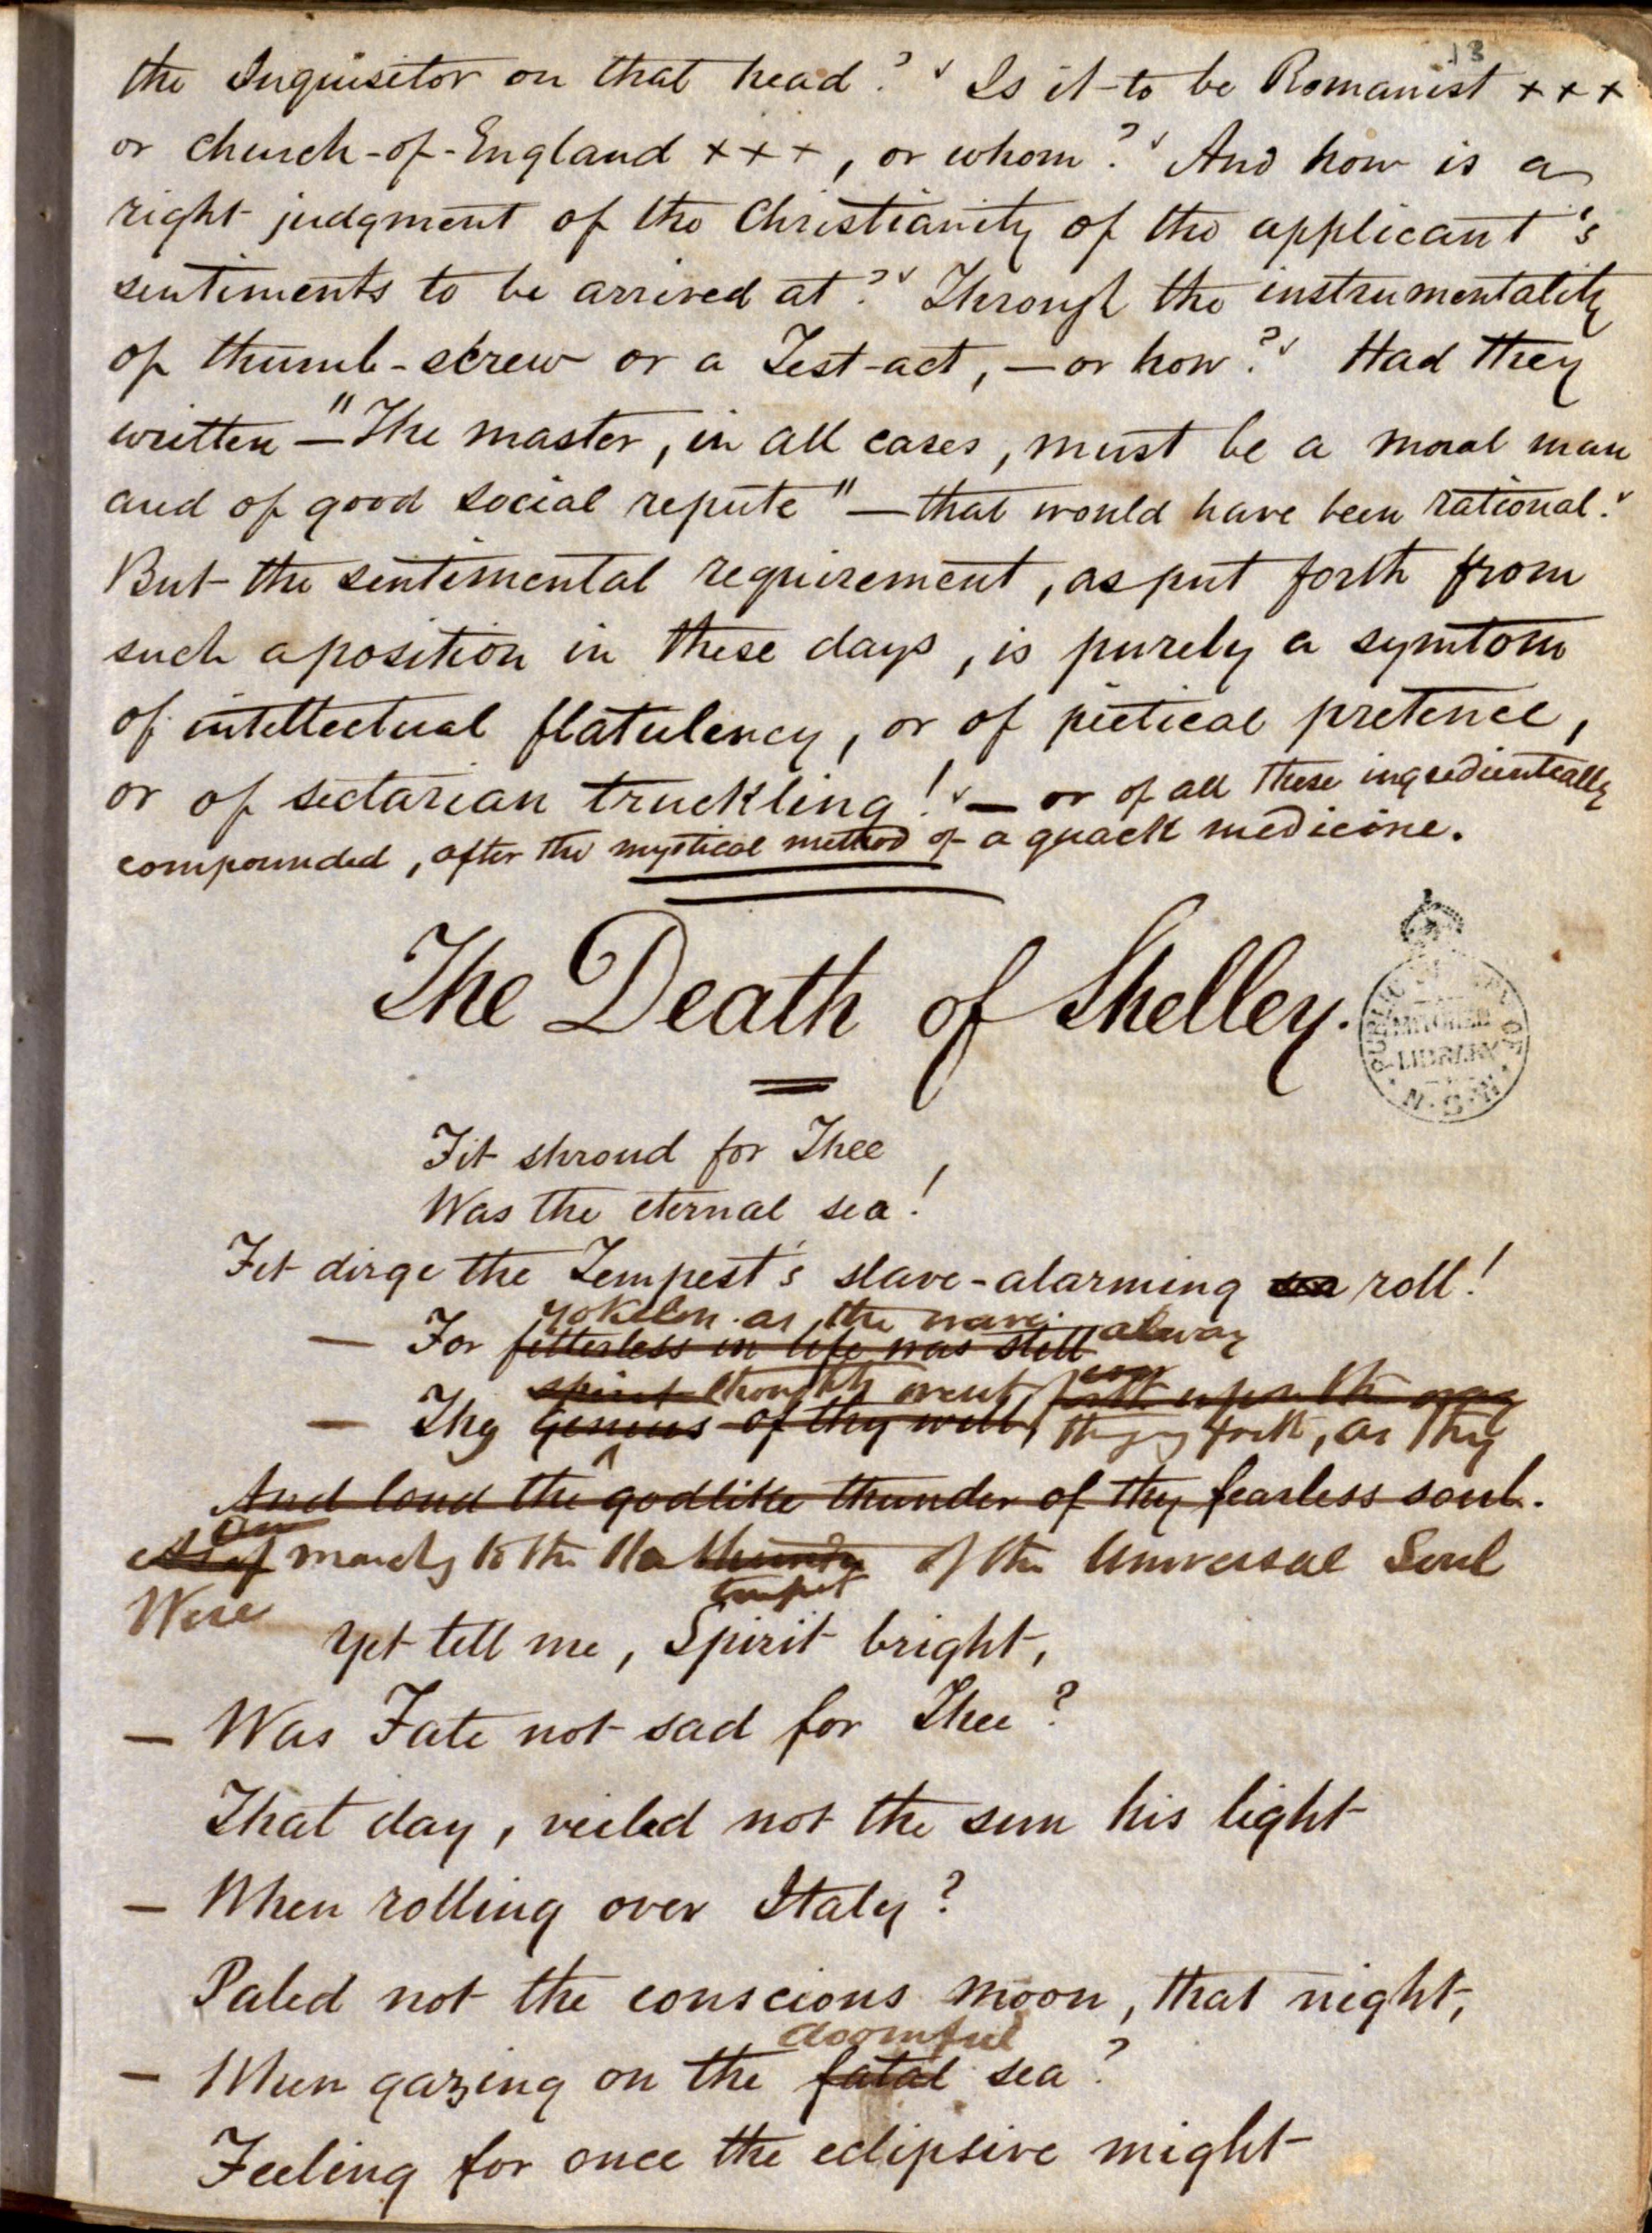 13
the Inquisitor on that head? Is it to be Romanist +++
or church-of-England +++, or whom? And how is a
right judgment of the Christianity of the applicant's
sentiments to be arrived at? Through the instrumentality
of thumb-screw or a Test-act, — or how? Had they
written — "The master, in all cases, must be a moral man
and of good social repute" — that would have been rational.
But the sentimental requirement, as put forth from
such a position in these days, is purely a symtom
of intellectual flatulency, or of pietical pretence,
or of sectarian truckling! — or of all these ingredientally
compounded, after the mystical method of a quack medicine.
The Death of Shelley.
PUBLIC LIBRARY OF
MITCHELL
LIBRARY
N.S.W.
Fit shroud for Thee
Was the eternal sea!
Fit dirge the Tempest's slave-alarming sea roll!
as the wave alway
— For fetterless in life was still
spirit thoughts went forth upon the way
— Thy Genius of thy will forth, as they
And loud the godlike thunder of thy fearless soul.
On
As if march to the thunder of the Universal Soul
tempest
Were
Yet tell me, Spirit bright,
— Was Fate not sad for Thee?
That day, veiled not the sun his light
— When rolling over Italy?
Paled not the conscious moon, that night,
doomful
— When gazing on the fatal sea?
Feeling for once the eclipsive might